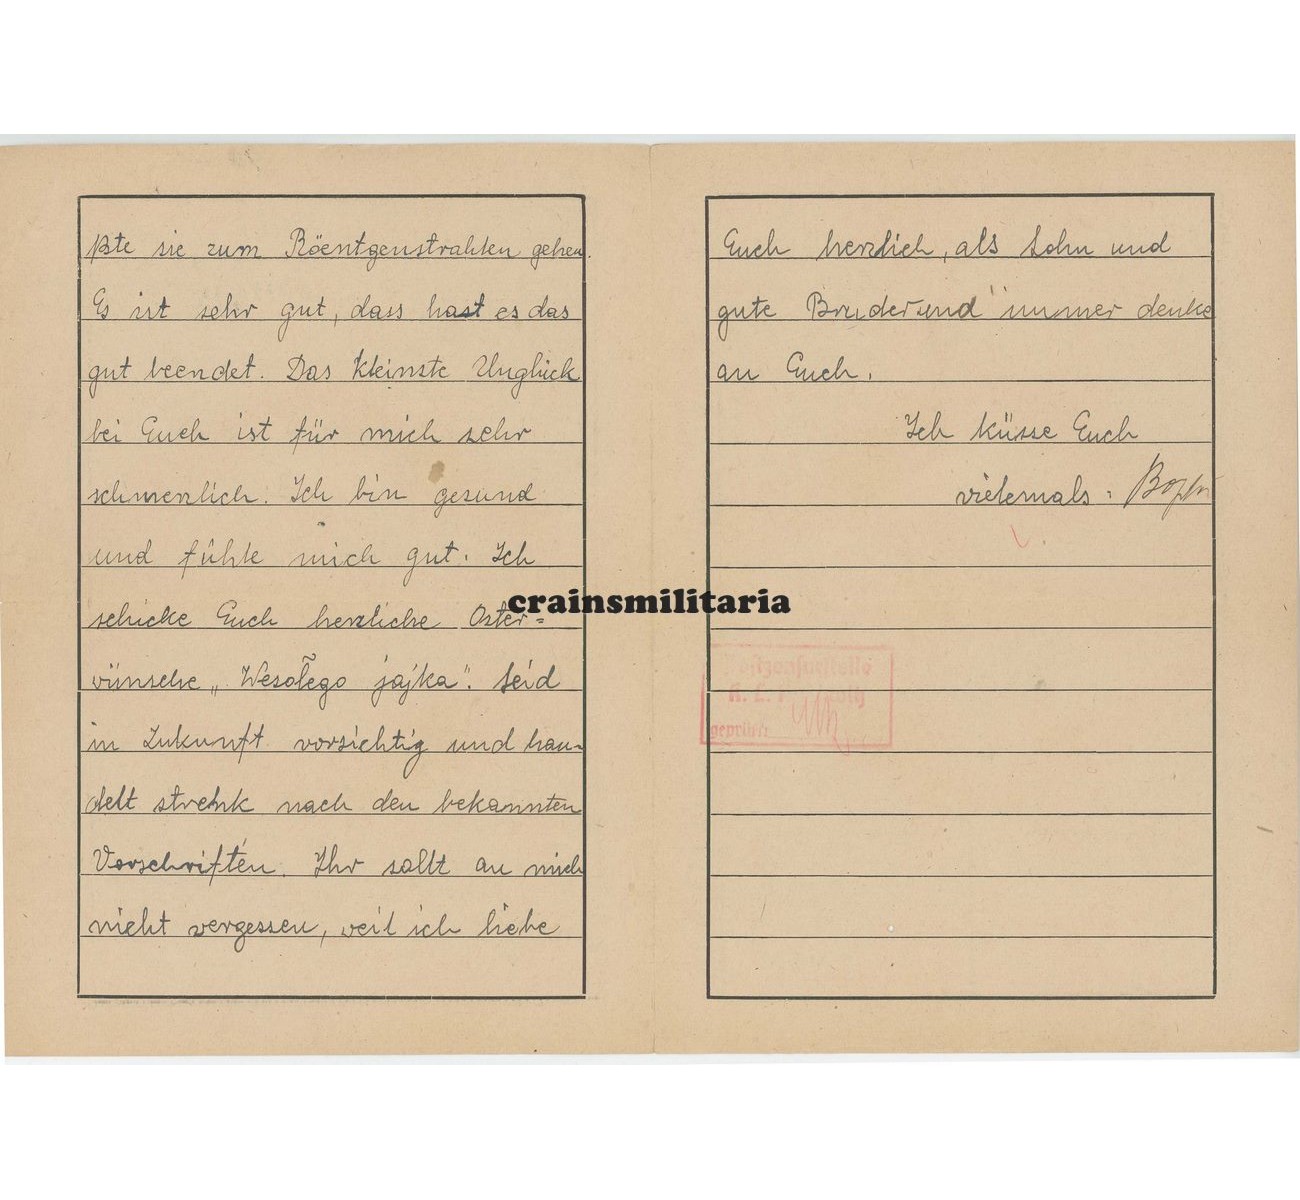 ßte sie zum Röentgenstrahlen gehen.
Es ist sehr gut, dass hast es das
gut beendet. Das kleinste Unglück
bei Euch ist für mich sehr
schmerzlich. Ich bin gesund
und fühle mich gut. Ich
schicke Euch herzliche Oster=
wünsche „Wesołego jajka". Seid
in Zukunft vorsichtig und han-
delt strenk nach den bekannten
Vorschriften. Ihr sollt an mich
nicht vergessen, weil ich liebe
Euch herzlich, als Sohn und
gute Bruder und immer denke
an Euch.
Ich küsse Euch
vielemals:
crainsmilitaria
K. L.
geprüft: